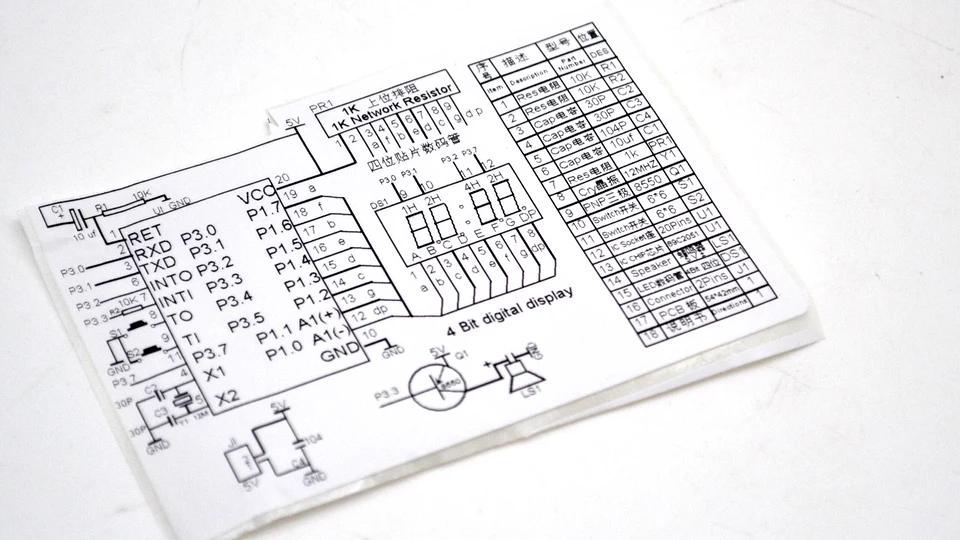 1K 上位排阻
PR1 1K Network Resistor
5V
1 2 3 4 5 6 7 8 9
a f b e d c g dp
四位贴片数码管
P3.0 P3.1 P3.2 P3.7
9 10 11 12
DS1
1H 2H 4H 2H
A B C D E F G DP
1 2 3 4 5 6 7 8
a b c d e f g dp
4 Bit digital display
C1 R1 10K
10 uf U1 GND
VCC 20
1 RET P1.7 19 a
2 RXD P3.0 P1.6 18 f
P3.0 3 TXD P3.1 P1.5 17 b
P3.1 6 INTO P3.2 P1.4 16 e
P3.2 7 INTI P3.3 P1.3 15 d
P3.3 R2 10K 8 TO P3.4 P1.2 14 c
S1 9 TI P3.5 P1.1 A1(+) 13 g
S2 11 P3.7 P1.0 A1(-) 12 dp
GND P3.7 4 X1 GND 10
GND
30P C2 5 X2
C3 Y1 12M
30P
GND
5V Q1
P3.3 8550
LS1
5V
J1 104
C4
5V GND
序号 描述 型号 位置
Item Description Part Number DES
1 Res电阻 10K R1
2 Res电阻 10K R2
3 Cap电容 30P C2
4 Cap电容 30P C3
5 Cap电容 104P C4
6 Cap电容 10uf C1
7 Res电阻 1k PR1
8 Cry晶振 12MHZ Y1
9 PNP三极 8550 Q1
10 Switch开关 6*6 S1
11 Switch开关 6*6 S2
12 IC Socket座 20Pins U1
13 IC CHIP芯片 89C2051 U1
14 Speaker LS1
15 LED数码管 4Bit 四位 DS1
16 Connector 2Pins J1
17 PCB 板 54*42mm 1
18 说明书 Directions 1